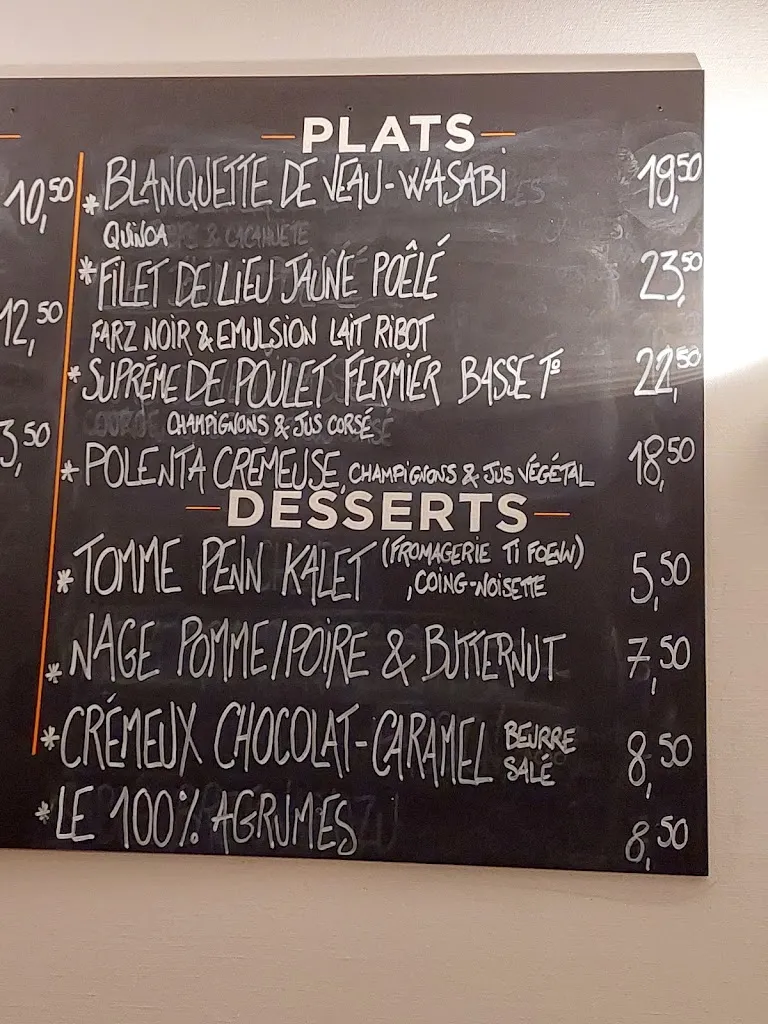 PLATS
10,50
* BLANQUETTE DE VEAU-WASABI 19,50
QUINOA
* FILET DE LIEU JAUNE POÊLÉ 23,50
12,50
FARZ NOIR & EMULSION LAIT RIBOT
* SUPRÊME DE POULET FERMIER BASSE T° 22,50
CHAMPIGNONS & JUS CORSÉ
3,50
* POLENTA CREMEUSE, CHAMPIGNONS & JUS VÉGÉTAL 18,50
DESSERTS
* TOMME PENN KALET (FROMAGERIE TI FOENN) 5,50
, COING-NOISETTE
* NAGE POMME/POIRE & BUTTERNUT 7,50
* CRÉMEUX CHOCOLAT-CARAMEL BEURRE 8,50
SALÉ
* LE 100% AGRUMES 8,50